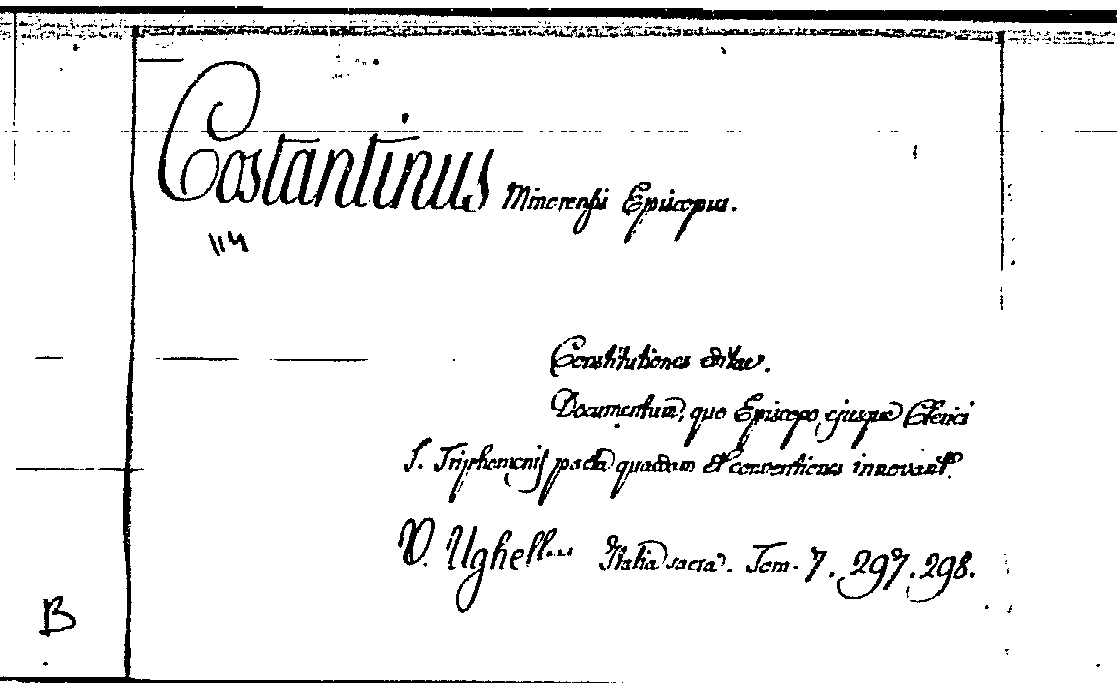 Costantinus Minorensis Episcopus.
114
Constitutiones editae.
Documentum, quo Episcopo, ejusque Clerici
S. Triphemonis pacta quaedam et conventiones innovant.
V. Ughell... Italia sacra. Tom. 7. 297. 298.
B